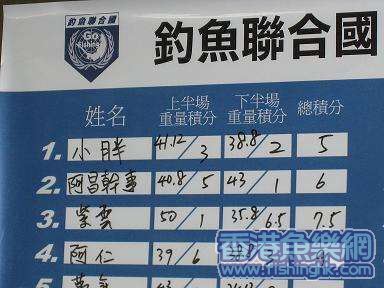 釣魚聯合國
Go Fishing
釣魚聯合國
姓名 上半場重量積分 下半場重量積分 總積分
1. 小胖 41.12/3 38.8/2 5
2. 阿昌幹事 40.8/5 43/1 6
3. 紫雲 50/1 35.8/6.5 7.5
4. 阿仁 39/6
5.
香港魚樂網
www.fishinghk.com